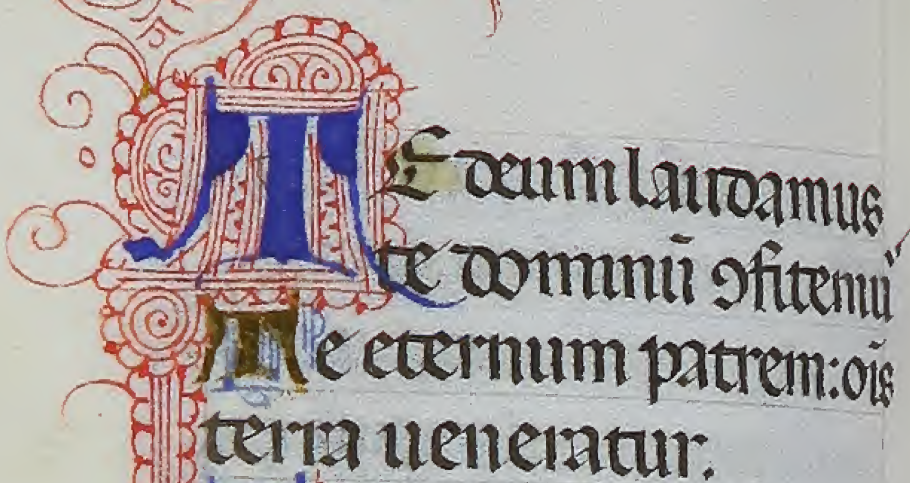 TE deum laudamus
te dominū ꝯfitemu᷑
Te eternum patrem: oīs
terra ueneratur.